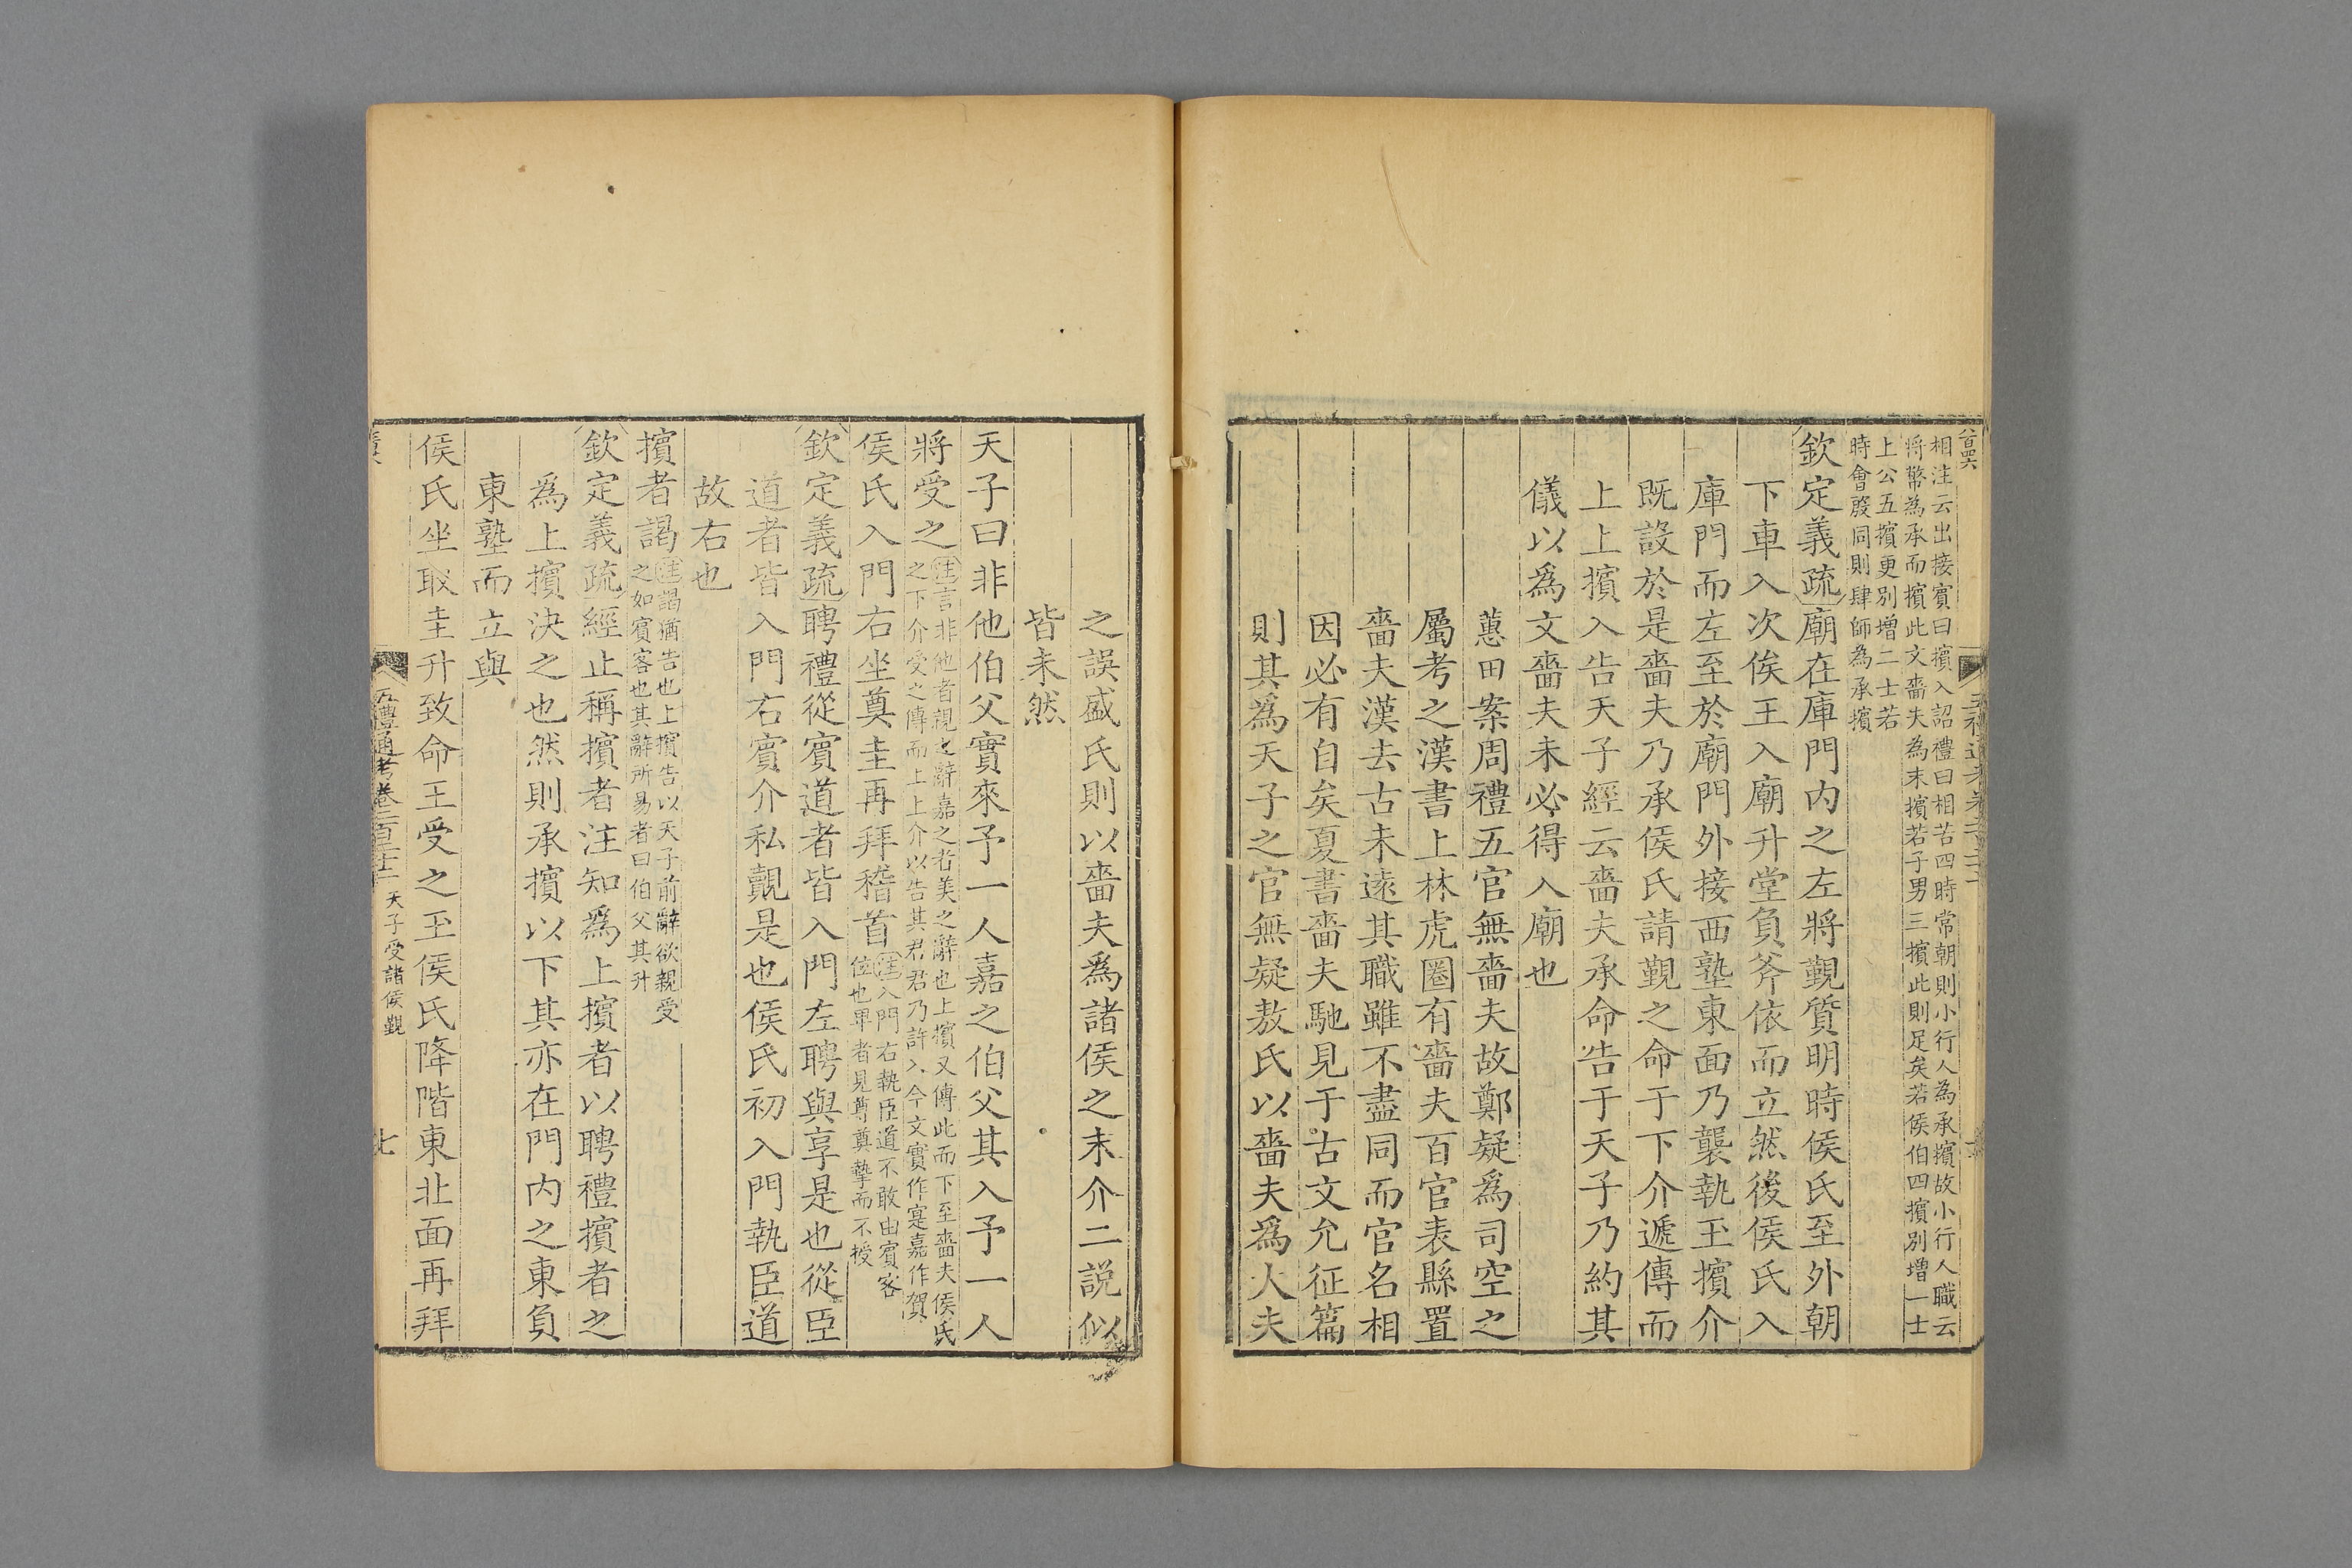 相注云出接賓曰擯入詔禮曰相若四時常朝則小行人為承擯故小行人職云
將幣為承而擯此文嗇夫為末擯若子男三擯此則足矣若侯伯四擯別增一士
上公五擯更別增二士若
時會殷同則肆師為承擯
欽定義疏廟在庫門内之左將覲質明時侯氏至外朝
下車入次俟王入廟升堂負斧依而立然後侯氏入
庫門而左至於廟門外接西塾東面乃襲執玉擯介
既設於是嗇夫乃承侯氏請覲之命于下介遞傳而
上上擯入告天子經云嗇夫承命告于天子乃約其
儀以爲文嗇夫未必得入廟也
蕙田案周禮五官無嗇夫故鄭疑爲司空之
屬考之漢書上林虎圈有嗇夫百官表縣置
嗇夫漢去古未遠其職雖不盡同而官名相
因必有自矣夏書嗇夫馳見于古文允征篇
則其爲天子之官無疑敖氏以嗇夫爲大夫
之誤盛氏則以嗇夫爲諸侯之末介二説似
皆未然
天子曰非他伯父實來予一人嘉之伯父其入予一人
將受之注言非他者親之辭嘉之者美之辭也上擯又傳此而下至嗇夫侯氏
之下介受之傳而上上介以告其君君乃許入今文實作寔嘉作賀
侯氏入門右坐奠圭再拜稽首注入門右執臣道不敢由賓客
位也卑者見尊奠摯而不授
欽定義疏聘禮從賓道者皆入門左聘與享是也從臣
道者皆入門右賓介私覿是也侯氏初入門執臣道
故右也
擯者謁注謁猶告也上擯告以天子前辭欲親受
之如賓客也其辭所易者曰伯父其升
欽定義疏經止稱擯者注知爲上擯者以聘禮擯者之
爲上擯決之也然則承擯以下其亦在門内之東負
東塾而立與
侯氏坐取圭升致命王受之玉侯氏降階東北面再拜
五禮通考卷二百二十一 天子受諸侯覲 七